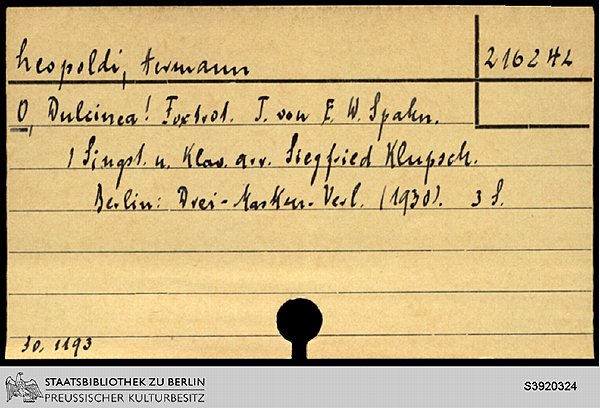 Leopoldi, Hermann
216242
O, Dulcinea! Foxtrot. T. von F. W. Spahn.
1 Singst. u. Klav. arr. Siegfried Klupsch.
Berlin: Drei-Masken-Verl. (1930). 3 S.
30. 1193
STAATSBIBLIOTHEK ZU BERLIN
PREUSSISCHER KULTURBESITZ
S3920324